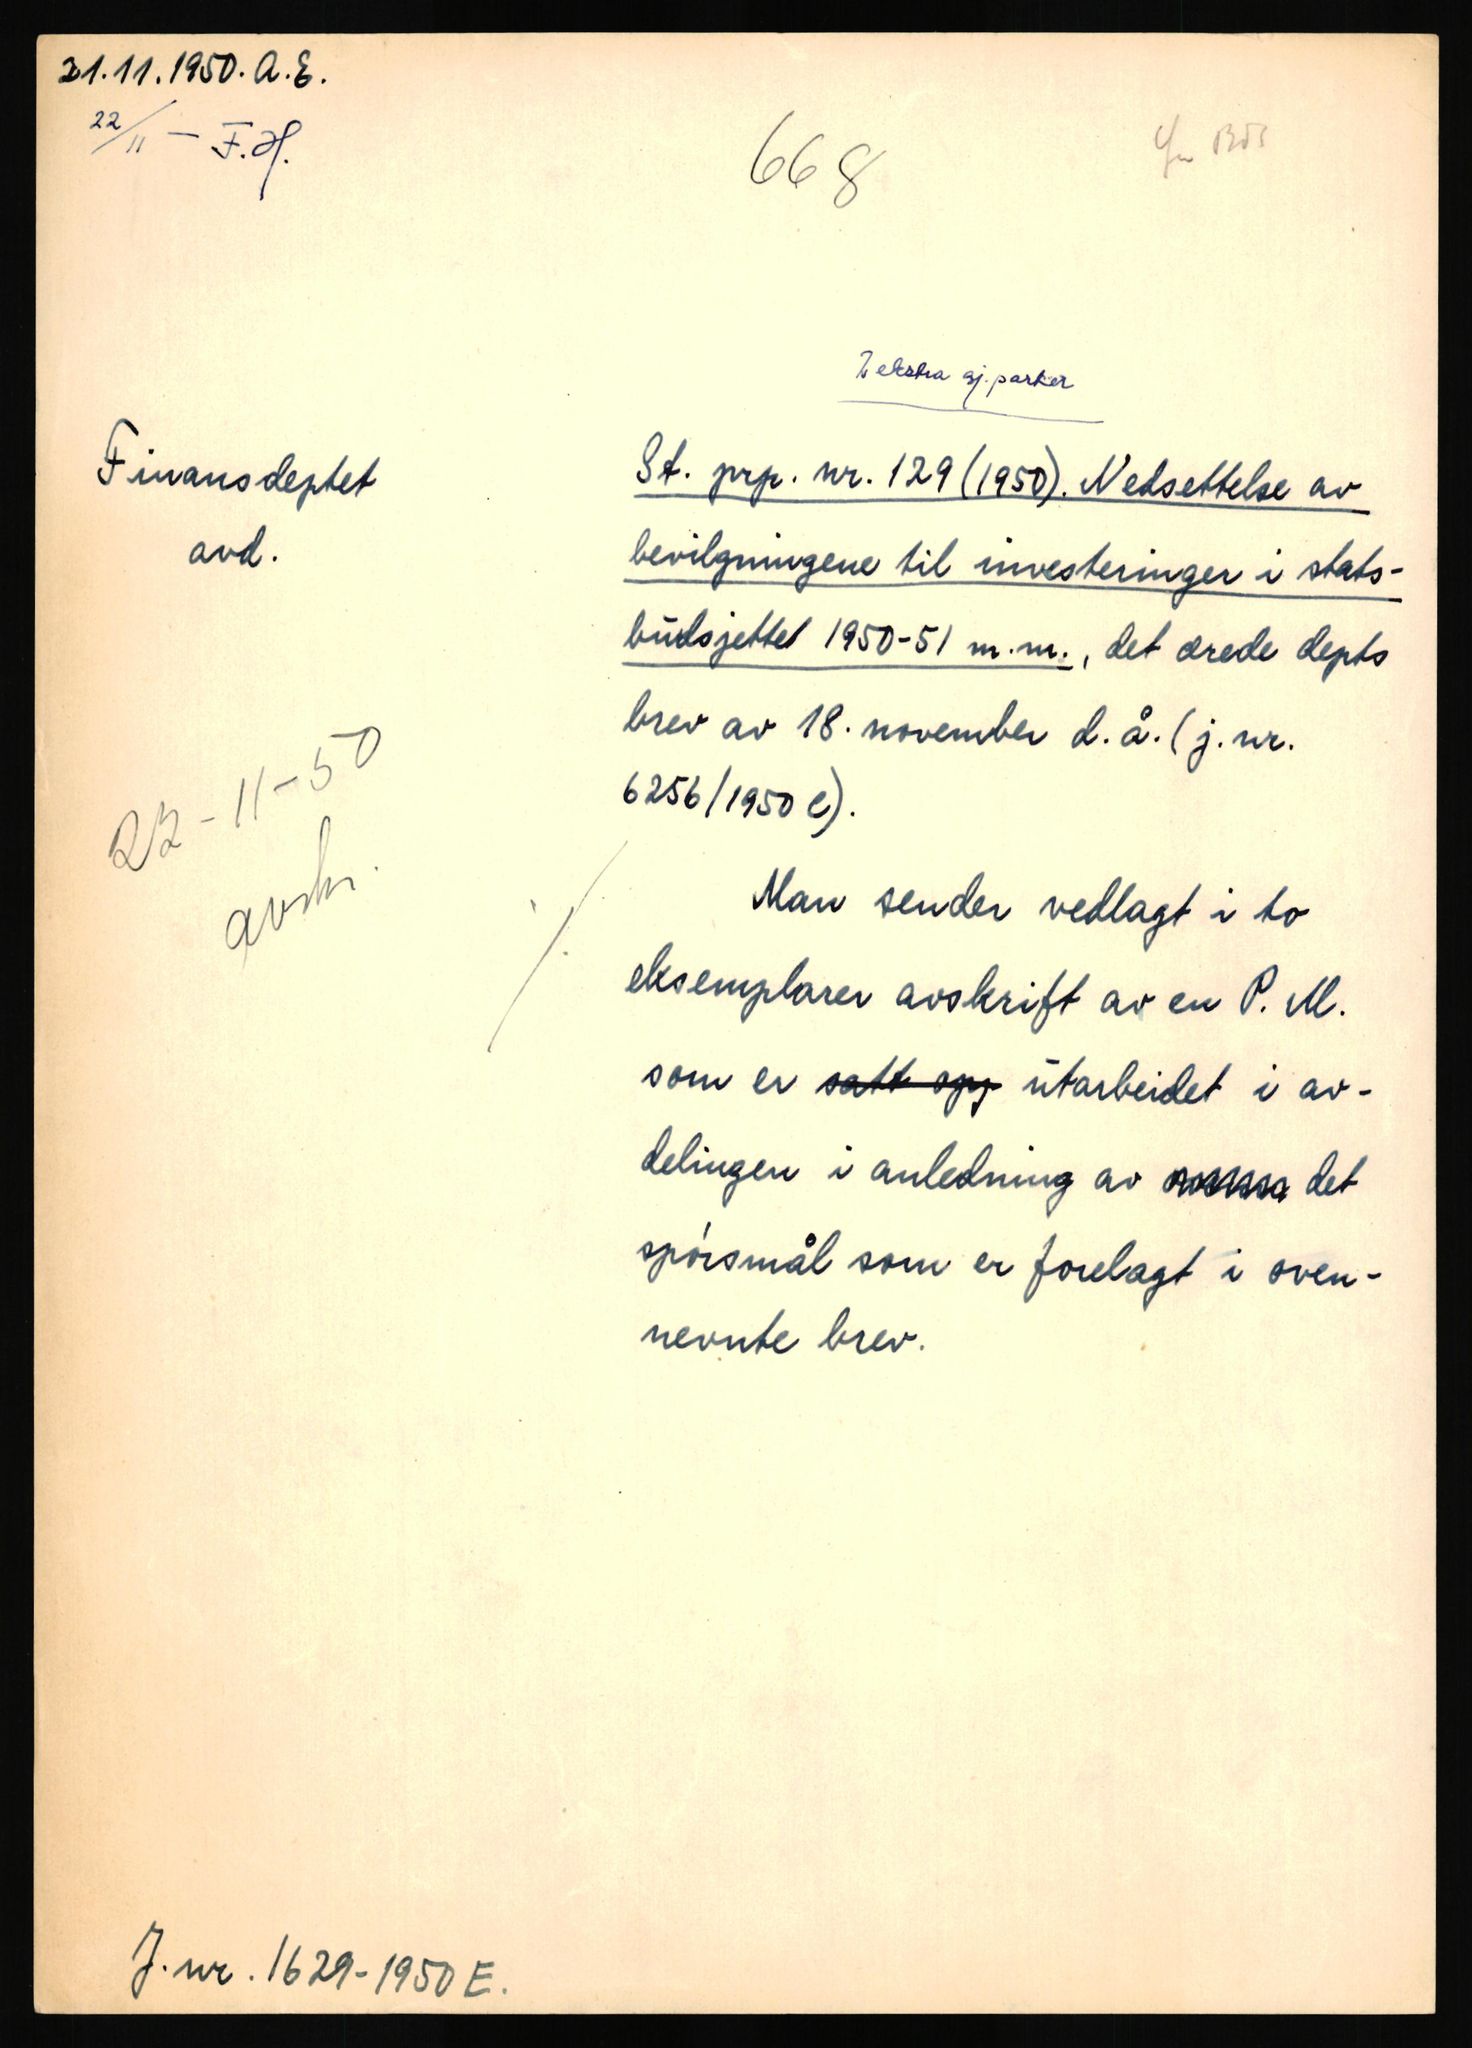 21.11.1950. A.E.
22/11 – F.H.
668
2 ekstra gj.parter
Finansdeptet
avd.
St. prp. nr. 129 (1950). Nedsettelse av
bevilgningene til investeringer i stats-
budsjettet 1950-51 m.m., det ærede depts
brev av 18. november d.å. (j. nr.
6256/1950 C).
22-11-50
avskr.
./.
Man sender vedlagt i to
eksemplarer avskrift av en P.M.
som er satt opp utarbeidet i av-
delingen i anledning av det
spørsmål som er forelagt i oven-
nevnte brev.
J. nr. 1629-1950 E.